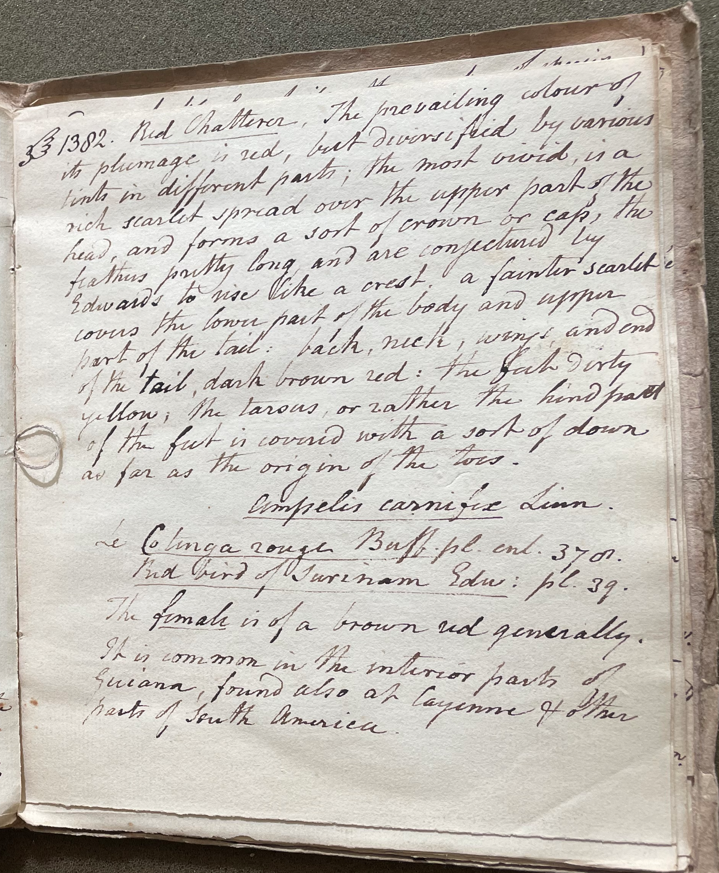 33 1382. Red Chatterer, The prevailing colour of
its plumage is red, but diversified by various
tints in different parts; the most vivid, is a
rich scarlet spread over the upper part of the
head, and forms a sort of crown or cap, the
feathers pretty long and are conjectured by
Edwards to rise like a crest. a fainter scarlet
covers the lower part of the body and upper
part of the tail: back, neck, wings, and end
of the tail, dark brown red: the feet dirty
yellow; the tarsus, or rather the hind part
of the feet is covered with a sort of down
as far as the origin of the toes.
Ampelis carnifex Linn.
Le Cotinga rouge Buff. pl. enl. 378.
Red bird of Surinam Edw: pl. 39.
The female is of a brown red generally.
It is common in the interior parts of
Guiana, found also at Cayenne & other
parts of South America.